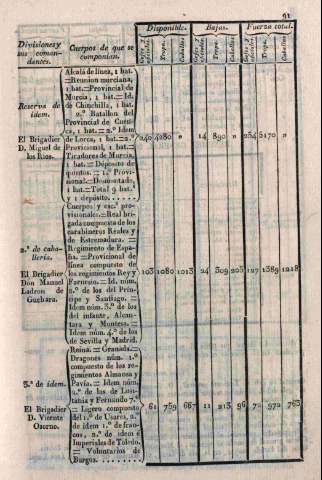 91
Divisiones y sus comandantes.
Cuerpos de que se componian.
Disponible.
Bajas.
Fuerza total.
Gefes y oficiales. Tropa. Caballos
Gefes y oficiales. Tropa. Caballos
Gefes y oficiales. Tropa. Caballos
Reserva de idem.
El Brigadier D. Miguel de los Rios.
Alcalá de linea, 1 bat.
=Reunion murciana,
1 bat.=Provincial de
Murcia, 1 bat.=Id.
de Chinchilla, 1 bat.
2.º Batallon del
Provincial de Cuenca, 1 bat.=2.º Idem
de Lorca, 1 bat.=2.º
Provisional, 1 bat.=
Tiradores de Murcia,
1 bat.=Depósito de
quintos.=1.º Provisional.=Desmontado,
1 bat.=Total 9 bat.s
y 1 depósito.
240 4280 " 14 890 " 254 5170 "
2.ª de caballería.
El Brigadier
Don Manuel
Ladron de
Guebara.
Cuerpos y esc.s provisionales.=Real brigada compuesta de los
carabineros Reales y
de Estremadura.=
Regimiento de España.=Provisional de
linea compuesto de
los regimientos Rey y
Farnesio.=Id. núm.
2.º de los del Príncipe y Santiago.=
Idem núm. 3.º de los
del infante, Alcantara y Montesa.=
Idem núm. 4.º de los
de Sevilla y Madrid.
103 1080 1013 24 309 205 127 1389 1218
3.ª de idem.
El Brigadier
D. Vicente
Osorno.
Reina.=Granada.=
Dragones núm. 1.º
compuesto de los regimientos Almansa y
Pavía.=Idem núm.
2.º de los de Lusitania y Fernando 7.º
=Ligero compuesto
del 1.º de Usares, 2.º
de idem 1.º de francos, 2.º de idem é
Imperiales de Toledo.
=Voluntarios de
Burgos.
61 759 667 11 213 96 72 972 763